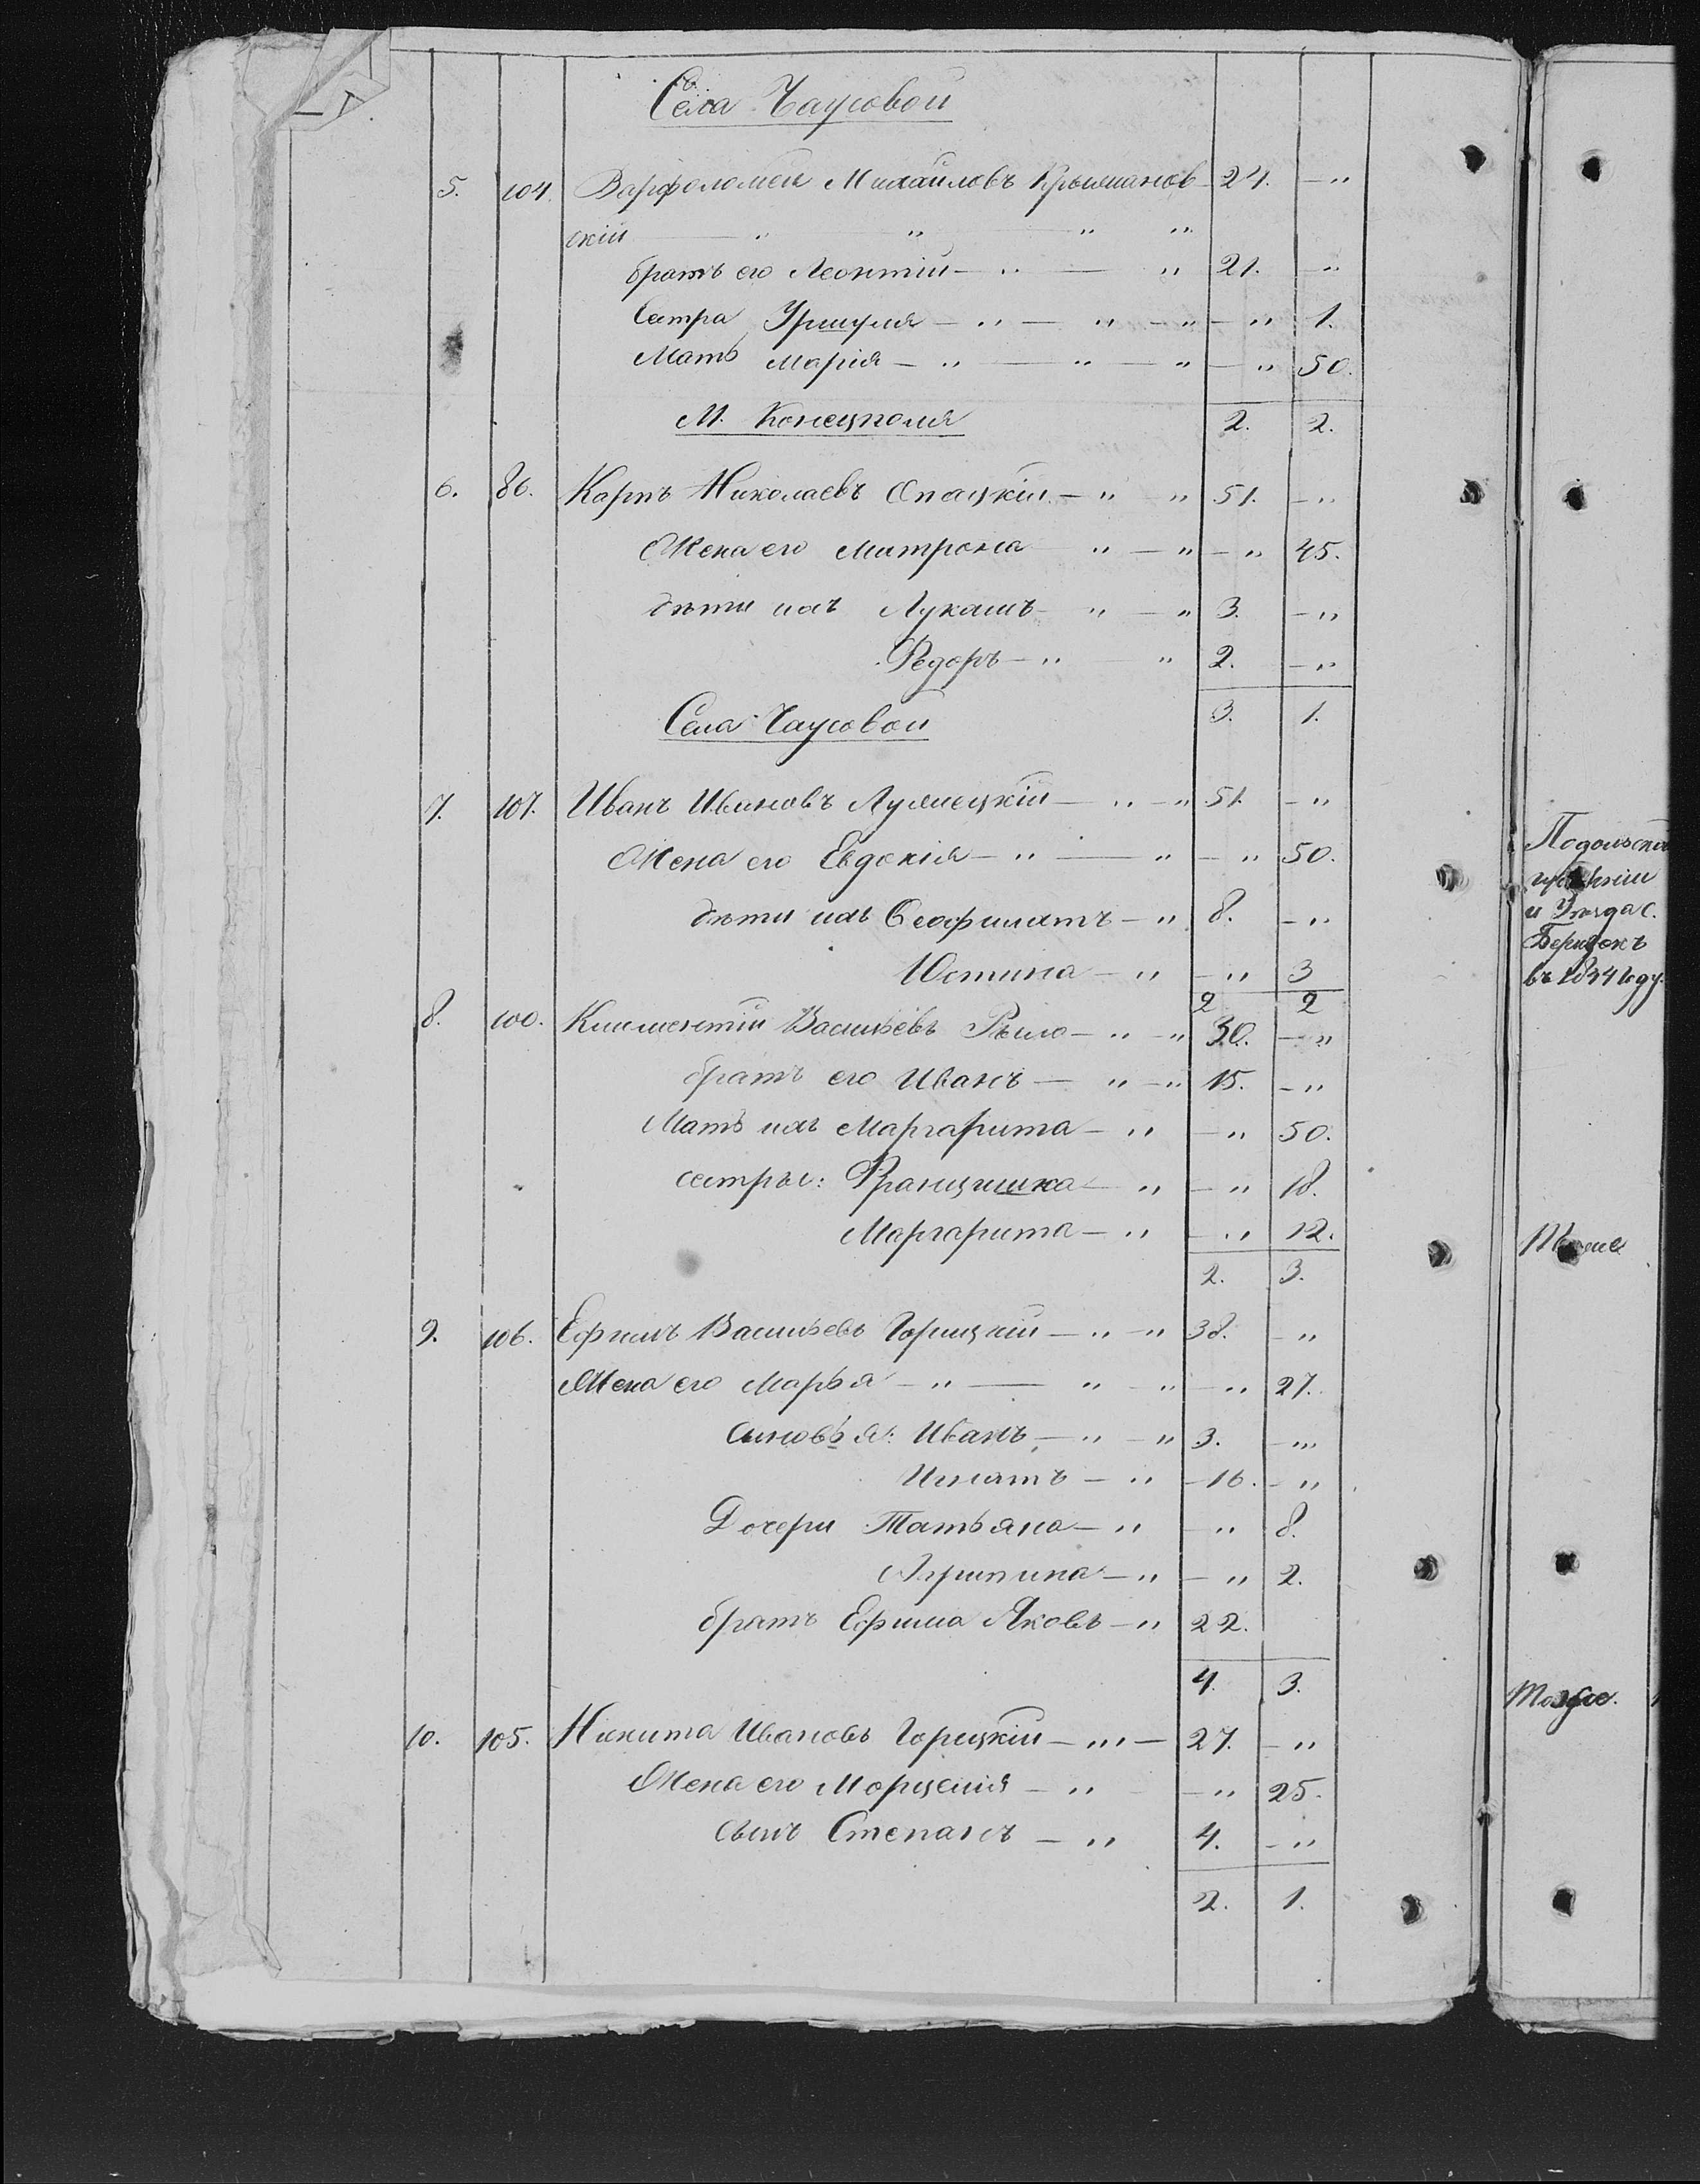 Села Чаусовой
5. 104. Варфоломей Михайловъ Крыжанов- 24. — „
скій — „ — „ — „ „
братъ его Леонтій — „ — „ 21. — „
Сестра Уршуля — „ — „ — „ — „ 1.
Мать Марія — „ — „ — „ — „ 50.
М. Конецполя 2. 2.
6. 86. Карпъ Николаевъ Опацкій — „ „ 51. — „
Жена его Митрона „ — „ — „ 45.
дѣти ихъ Лукашъ — „ — „ 3. — „
Федоръ — „ „ 2. — „
3. 1.
Села Чаусовой
7. 107. Иванъ Ивановъ Лумецкій — „ — „ 51. — „
Жена его Евдокія — „ — „ — „ 50.
дѣти ихъ Феофилатъ — „ 8. — „
Юстина — „ — „ 3
2 2
8. 100. Климентій Васильевъ Рыло — „ — „ 30. — „
братъ его Иванъ — „ — „ 15. — „
Мать ихъ Маргарита — „ — „ 50.
сестры: Францишка — „ — „ 18.
Маргарита — „ — „ 12.
2. 3.
9. 106. Ефимъ Васильевъ Горицкій — „ — „ 38. — „
Жена его Марья — „ — „ — „ — „ 27.
сыновья: Иванъ — „ — „ 3. — „
Игнатъ — „ — 16. — „
Дочери Татьяна — „ — „ 8.
Агрипина — „ — „ 2.
братъ Ефима Яковъ — „ 22.
4. 3.
10. 105. Никита Ивановъ Горицкій — „ — 27. — „
Жена его Марцеля — „ — „ 25.
сынъ Степанъ — „ 4. — „
2. 1.
Подольской
губерніи
и Уѣзда с.
въ 1844 году.
Тоже.